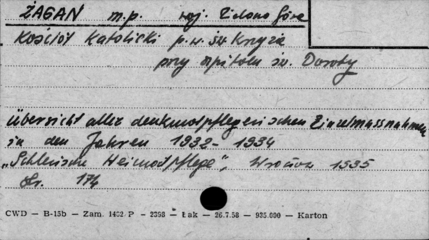 ŻAGAN m.p. woj. Zielona Góra
Kościół Katolicki p.w. Św Krzyża
przy szpitalu św. Doroty
Übersicht aller denkmalpflegerischen Einzelmassnahmen
in den Jahren 1932-1934
„Schlesische Heimatpflege", Wrocław 1935
Str. 174
CWD — B-15b — Zam. 1432 P - 2398 — Łak — 26.7.58 — 925.000 — Karton